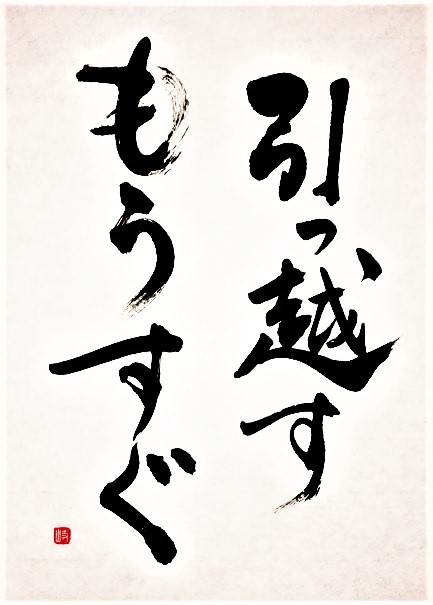 引っ越す
もうすぐ